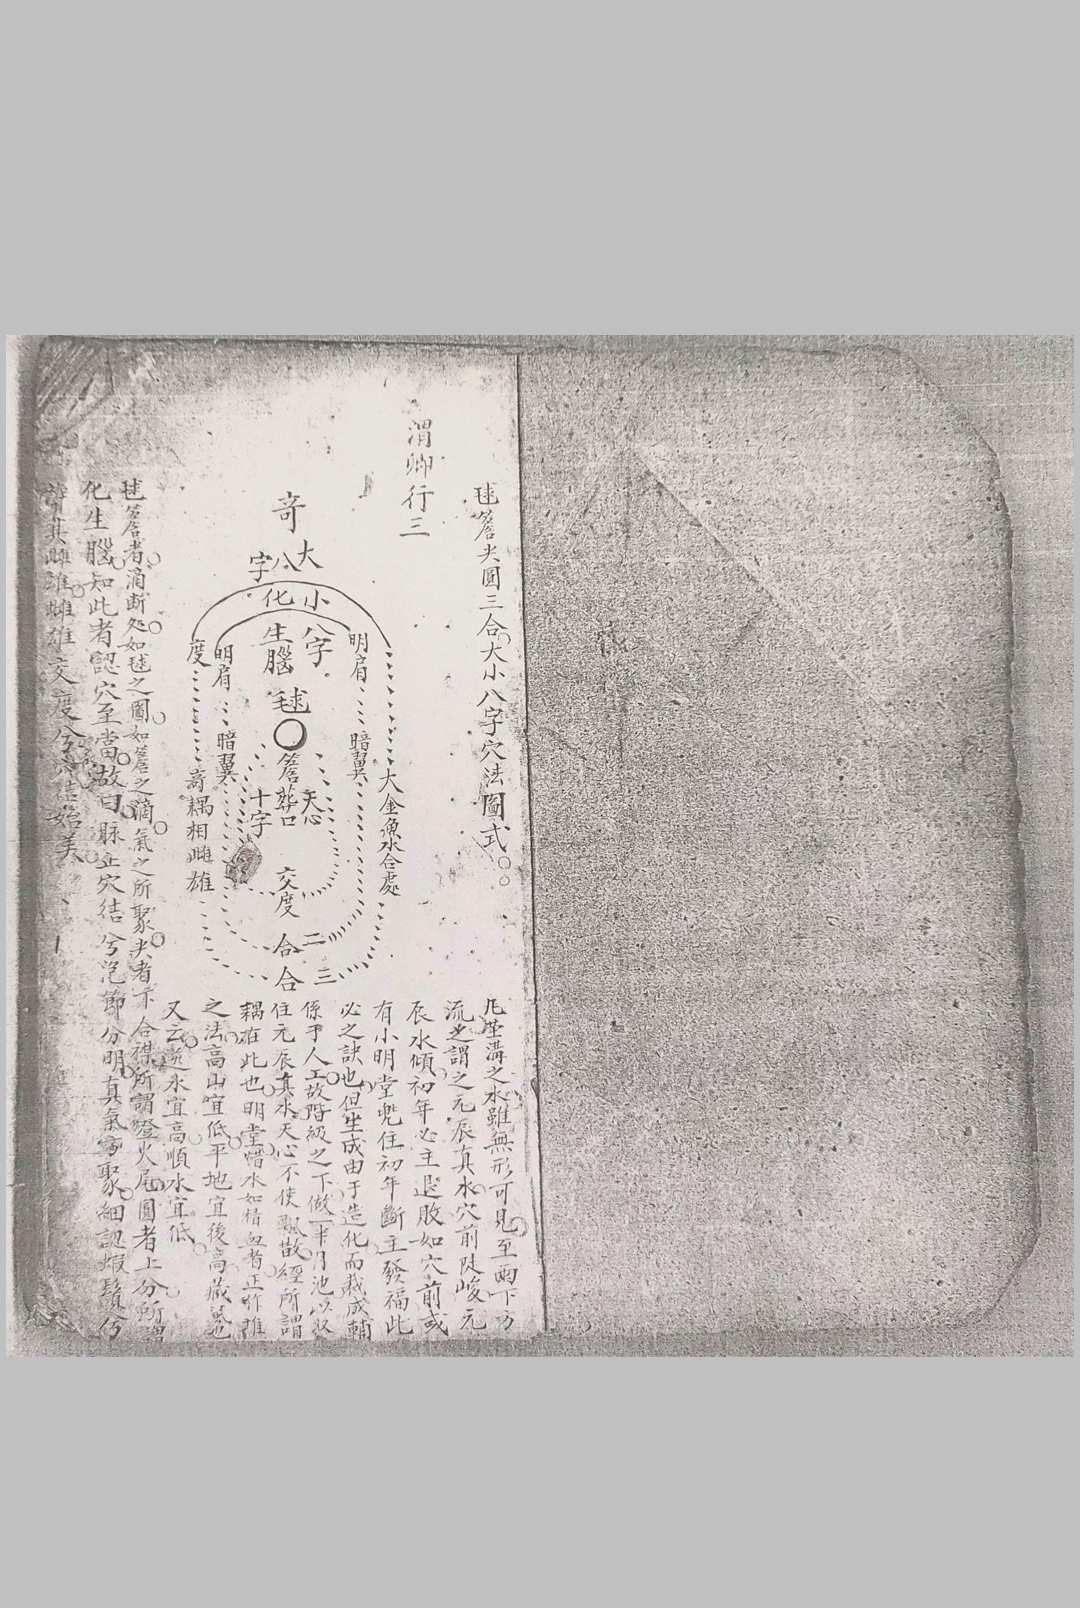 毬簷夹圓三合大小八字穴法圖式
渭卿行三
奇
大八字
小八字
化生腦
明肩
明肩
度
毬
暗翼
暗翼
簷葬口
天心
十字
大金魚水合處
奇耦相雌雄
交度
二合
三合
凡茔溝之水雖無形可見至両下方
流之謂之元辰真水穴前陡峻元
辰水傾初年必主退敗如穴前或
有小明堂兠住初年斷主發福此
必之訣也但生成由于造化而裁成輔
係乎人工故階級之下做一半月池以収
住元辰真水天心不使飄散經所謂
耦在此也明堂惜水如惜血者正作堆
之法高山宜低平地宜後高藏風也
又云逆水宜高順水宜低
毬簷者滴断処如毬之圓如簷之滴氣之所聚夹者下合襟所謂燈火尾圓者上分所謂
化生腦知此者認穴至當故曰脉立穴結兮氾節分明真氣聚細認蝦鬚兮
其雌雄雌雄交度兮結始美